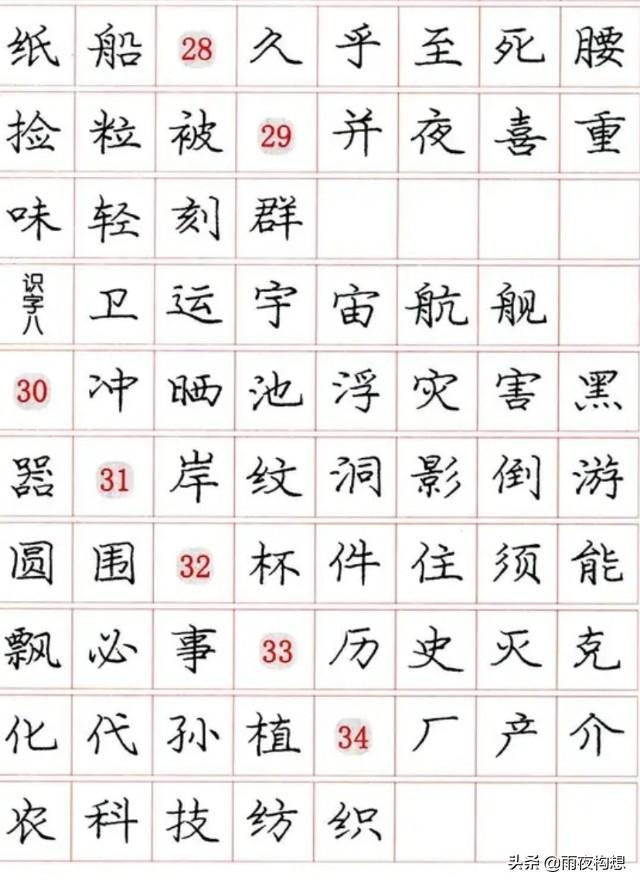 纸 船 28 久 乎 至 死 腰
捡 粒 被 29 并 夜 喜 重
味 轻 刻 群
识字八 卫 运 宇 宙 航 舰
30 冲 晒 池 浮 灾 害 黑
器 31 岸 纹 洞 影 倒 游
圆 围 32 杯 件 住 须 能
飘 必 事 33 历 史 灭 克
化 代 孙 植 34 厂 产 介
农 科 技 纺 织
头条 @雨夜构想